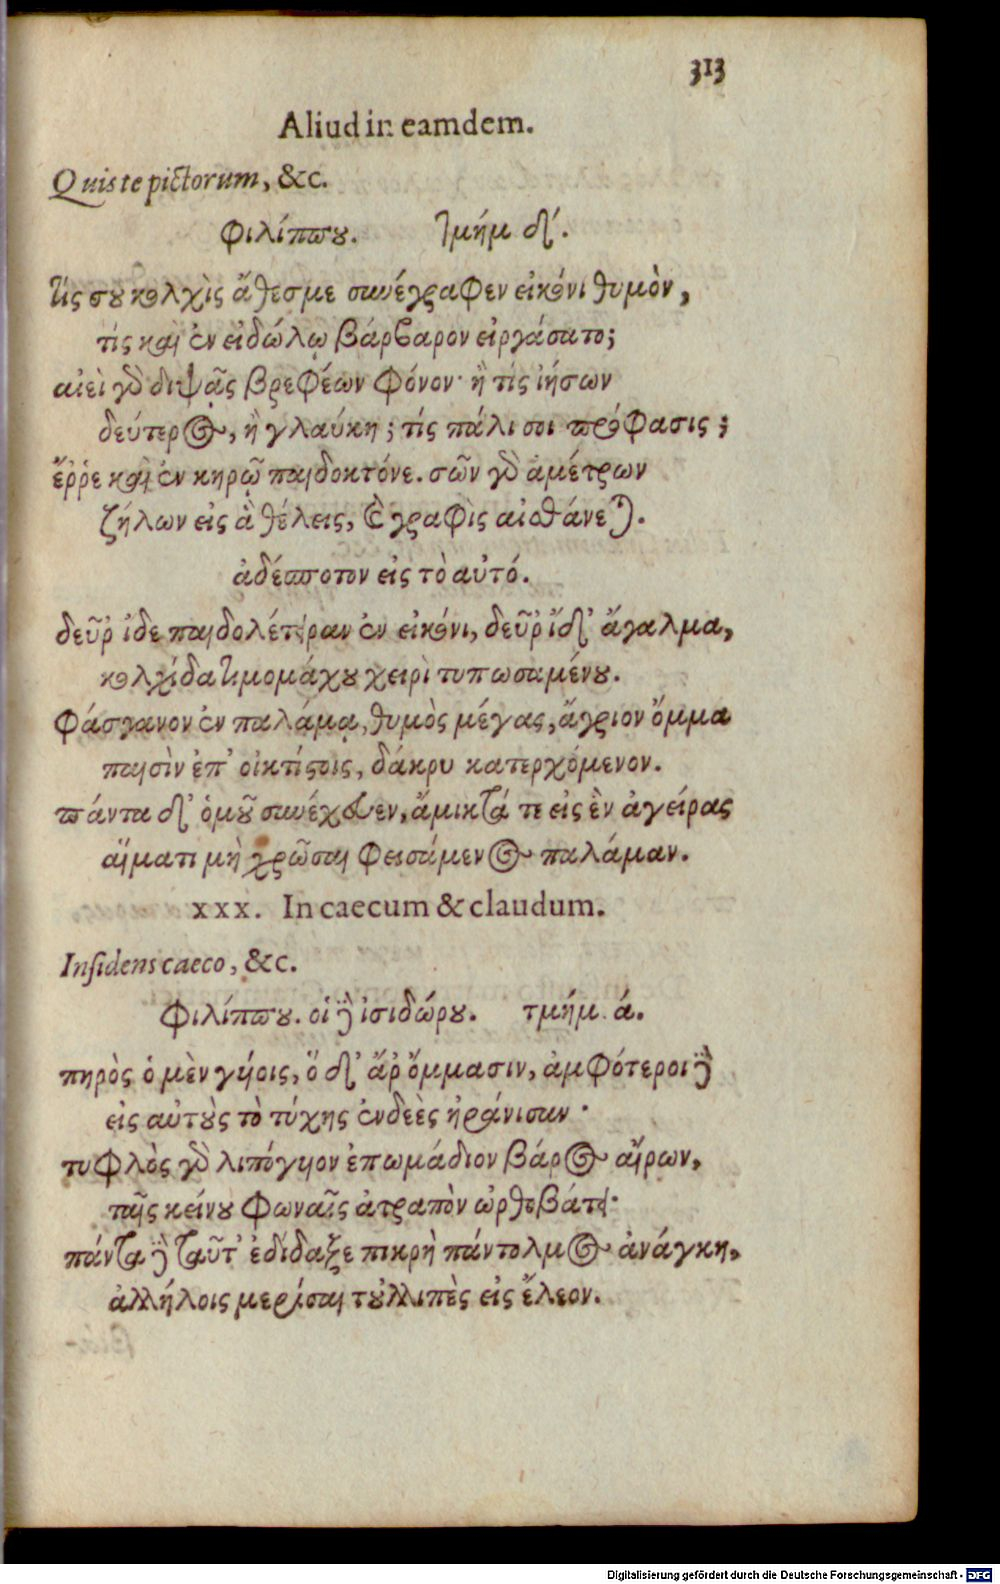 313
Aliud in eamdem.
Quis te pictorum, &c.
Φιλίππου. Τμήμ δ΄.
Τίς σου κολχὶς ἄθεσμε συνέγραφεν εἰκόνι θυμὸν,
τίς καὶ ἐν εἰδώλῳ βάρβαρον εἰργάσατο;
αἰεὶ γὸ διψᾷς βρεφέων φόνον· ἢ τίς ἰήσων
δεύτερος, ἢ γλαύκη; τίς πάλι σοι πρόφασις;
ἔῤῥε καὶ ἐν κηρῷ παιδοκτόνε. σῶν γὸ ἀμέτρων
ζήλων εἰς ἃ θέλεις, καὶ γραφὶς αἰσθάνεται.
ἀδέσποτον εἰς τὸ αὐτό.
δεῦρ ἴδε παιδολέτειραν ἐν εἰκόνι, δεῦρ ἴδ᾽ ἄγαλμα,
κολχίδα Τιμομάχου χειρὶ τυπωσαμένου.
Φάσγανον ἐν παλάμᾳ, θυμὸς μέγας, ἄγριον ὄμμα
παισὶν ἐπ᾽ οἰκτίστοις, δάκρυ κατερχόμενον.
πάντα δ᾽ ὁμοῦ συνέχευεν, ἄμικτά τε εἰς ἓν ἀγείρας
αἵματι μὴ χρῶσαι φεισάμενος παλάμαν.
xxx. In caecum & claudum.
Insidens caeco, &c.
Φιλίππου. οἱ δὲ ἰσιδώρου. τμήμ. ά.
πηρὸς ὁ μὲν γυίοις, ὃ δ᾽ ἄρ ὄμμασιν, ἀμφότεροι δὲ
εἰς αὐτοὺς τὸ τύχης ἐνδεὲς ἠράνισαν·
τυφλὸς γὸ λιπόγυιον ἐπωμάδιον βάρος αἴρων,
ταῖς κείνου φωναῖς ἀτραπὸν ὠρθοβάτει·
πάντα δὲ ταῦτ᾽ ἐδίδαξε πικρὴ πάντολμος ἀνάγκη,
ἀλλήλοις μερίσαι τοὐλλιπὲς εἰς ἔλεον.
Digitalisierung gefördert durch die Deutsche Forschungsgemeinschaft - DFG